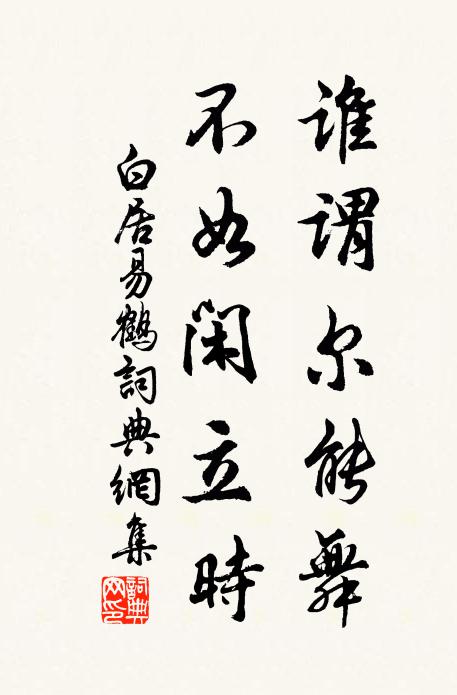 誰謂尔能舞
不如閑立時
白居易鶴詞典網集
詞典网印